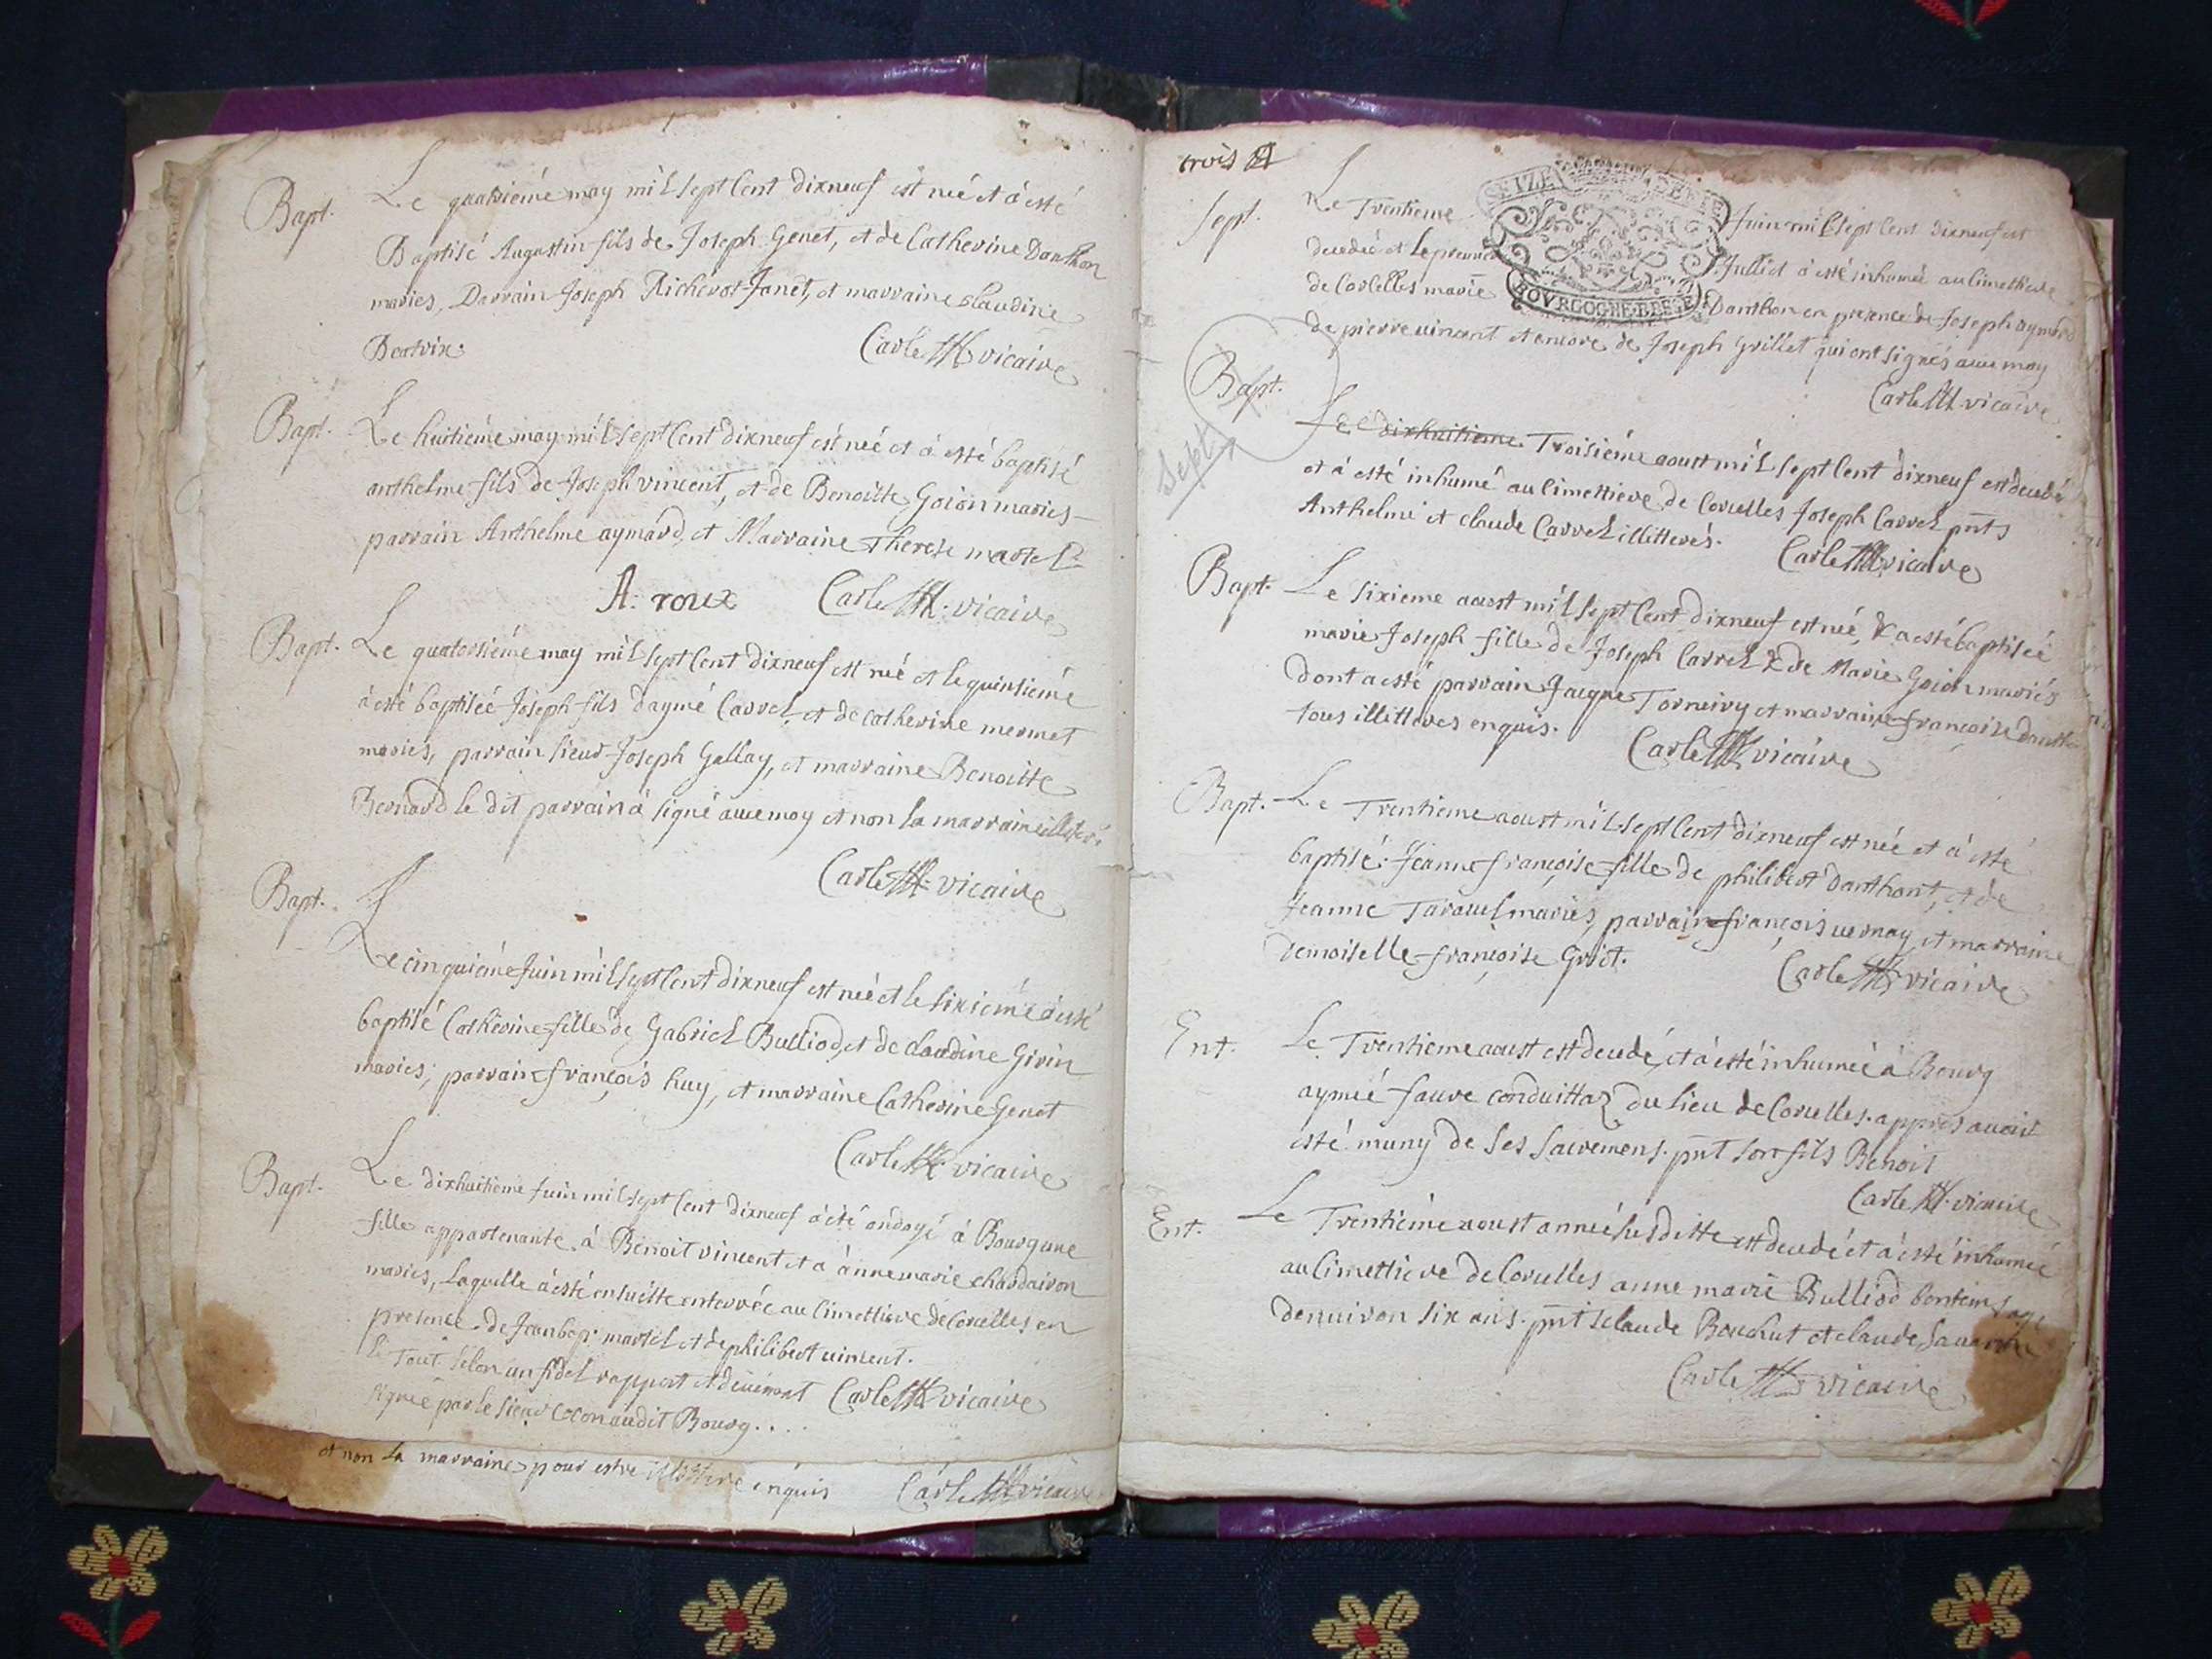 Bapt. Le quatriéme may mil sept Cent dixneuf est né et à esté
Baptisé Augustin fils de Joseph Genet, et de Catherine Danthon
mariés, Parrain Joseph Richerot-Janet, et marraine Claudine
Beatrix. Carle vicaire
Bapt. Le huitiéme may mil sept Cent dixneuf est né et à esté baptisé
anthelme fils de Joseph vincent, et de Benoitte Goion mariés
parrain Anthelme aymard, et Marraine Therese martel
A: roux Carle vicaire
Bapt. Le quatorsiéme may mil sept Cent dixneuf est né et le quinsiéme
à esté baptiséé Joseph fils d'aymé Carrel et de Catherine mermet
mariés, parrain sieur Joseph Gallay, et marraine Benoitte
Bernard le dit parrain à signé avec moy et non la marraine
Carle vicaire
Bapt. Le cinquiéme Juin mil sept Cent dixneuf est néé et le sixiéme à esté
baptisé Catherine fille de Gabriel Bulliod, et de Claudine Givin
mariés, parrain françois huy, et marraine Catherine Genet
Carle vicaire
Bapt. Le dixhuitiéme Juin mil sept Cent dixneuf à été ondoyé à Bourg une
fille appartenante à Benoit vincent et à anne marie chardairon
mariés, Laquelle à esté ensuitte enterréé au Cimettiere de Corcelles en
presence de Jean bap. martel et de philibert vincent.
le Tout selon un fidel rapport et deüement Carle vicaire
signéé par le sieur audit Bourg....
et non la marraine pour estre illittere enquis Carle vicaire
trois
Sept. Le Trentieme Juin mil sept Cent dixneuf est
decedé et le premier Julliet à esté inhumé au Cimettiere
de Corcelles marie Danthon en presence de Joseph aymard
de pierre vincent et encore de Joseph Grillet qui ont signés avec moy
Carle vicaire
SEIZE
BOVRGOGNE·BRESSE
Bapt.
Sept
Le dixhuitieme Troisiéme aoust mil sept Cent dixneuf est decedé
et à esté inhumé au Cimettiere de Corcelles Joseph Carrel pnts
Anthelme et Claude Carrel illitterés. Carle vicaire
Bapt. Le sixieme aoust mil sept Cent dixneuf est néé, & a esté baptiséé
marie Joseph fille de Joseph Carrel & de Marie Goion mariés
dont a esté parrain Jacque Torneiry et marraine françoise danthon
tous illitteres enquis. Carle vicaire
Bapt. Le Trentieme aoust mil sept Cent dixneuf est néé et à esté
baptisé Jeanne françoise fille de philibert Danthont, et de
Jeanne Taravel mariés, parrain françois vernay et marraine
demoiselle françoise Griot. Carle vicaire
Ent. Le Trentieme aoust est decedé, et à esté inhuméé à Bourg
ayméé faure conduittaz du lieu de Corcelles. appres avoir
esté muny de ses sacremens. pnt son fils Benoit
Carle vicaire
Ent. Le Trentiéme aoust annéé susditte est decedé et à esté inhuméé
au Cimettiere de Corcelles anne marie Bulliod bontems
denviron six ans. pnts Claude Bouchut et Claude Savarin
Carle vicaire